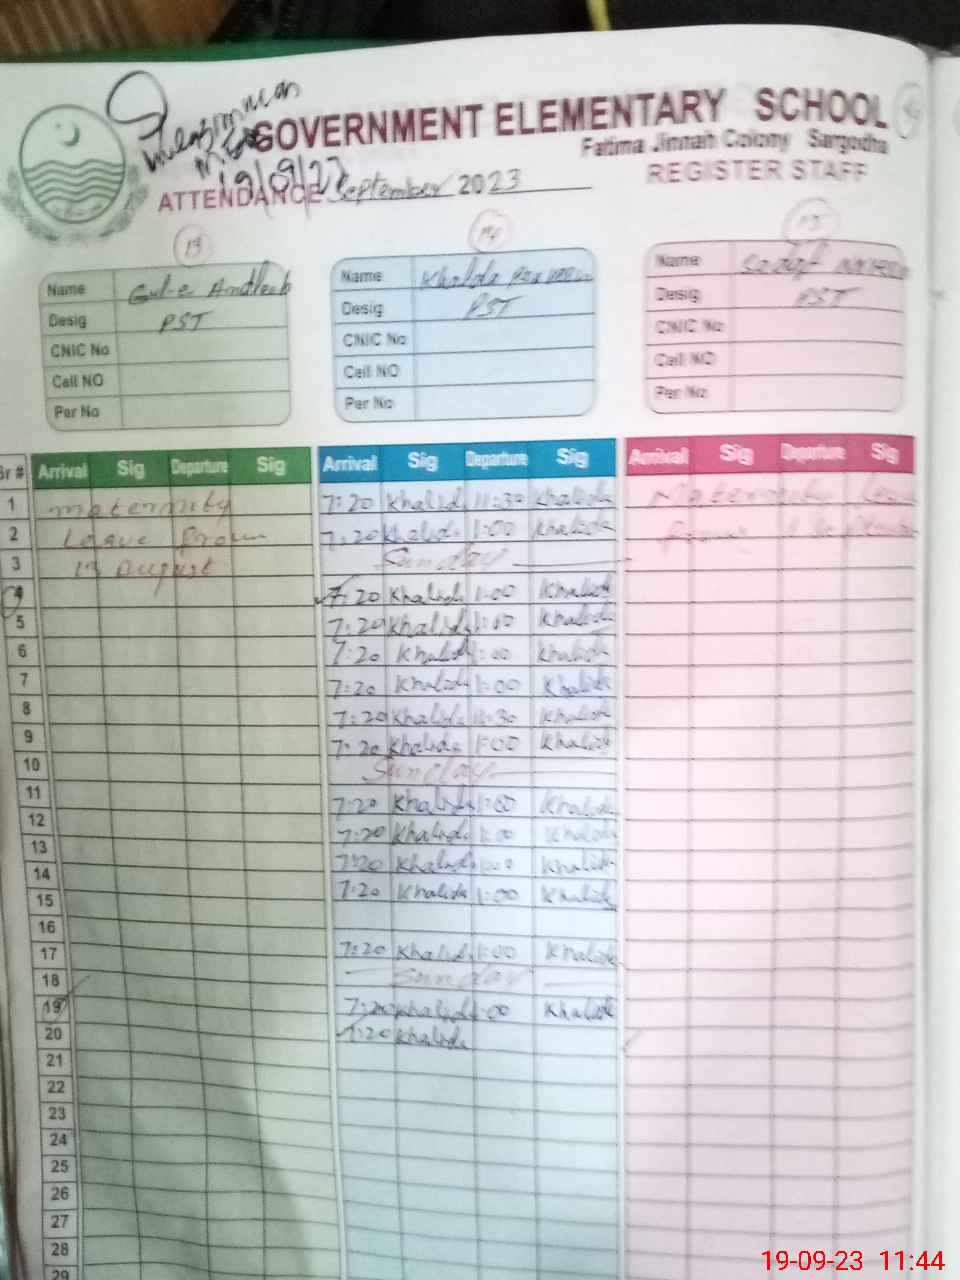 GOVERNMENT ELEMENTARY SCHOOL
Fatima Jinnah Colony Sargodha
19/09/23
ATTENDANCE September 2023 REGISTER STAFF
13 14 15
Name Gul-e Andleeb Name Khalida Parveen Name Sadaf
Desig PST Desig PST Desig PST
CNIC No CNIC No CNIC No
Cell NO Cell NO Cell NO
Per No Per No Per No
Sr # Arrival Sig Departure Sig Arrival Sig Departure Sig Arrival Sig Departure Sig
1 maternity 7:20 Khalida 11:30 Khalida Maternity Leave
2 Leave From 7:20 Khalida 1:00 Khalida From 1
3 13 August Sunday
4 7:20 Khalida 1:00 Khalida
5 7:20 Khalida 1:00 Khalida
6 7:20 Khalida 1:00 Khalida
7 7:20 Khalida 1:00 Khalida
8 7:20 Khalida 11:30 Khalida
9 7:20 Khalida 1:00 Khalida
10 Sunday
11 7:20 Khalida 1:00 Khalida
12 7:20 Khalida 1:00 Khalida
13 7:20 Khalida 1:00 Khalida
14 7:20 Khalida 1:00 Khalida
15
16 7:20 Khalida 1:00 Khalida
17 Sunday
18 7:20 Khalida 1:00 Khalida
19 7:20 Khalida
20
21
22
23
24
25
26
27
28
29
19-09-23 11:44